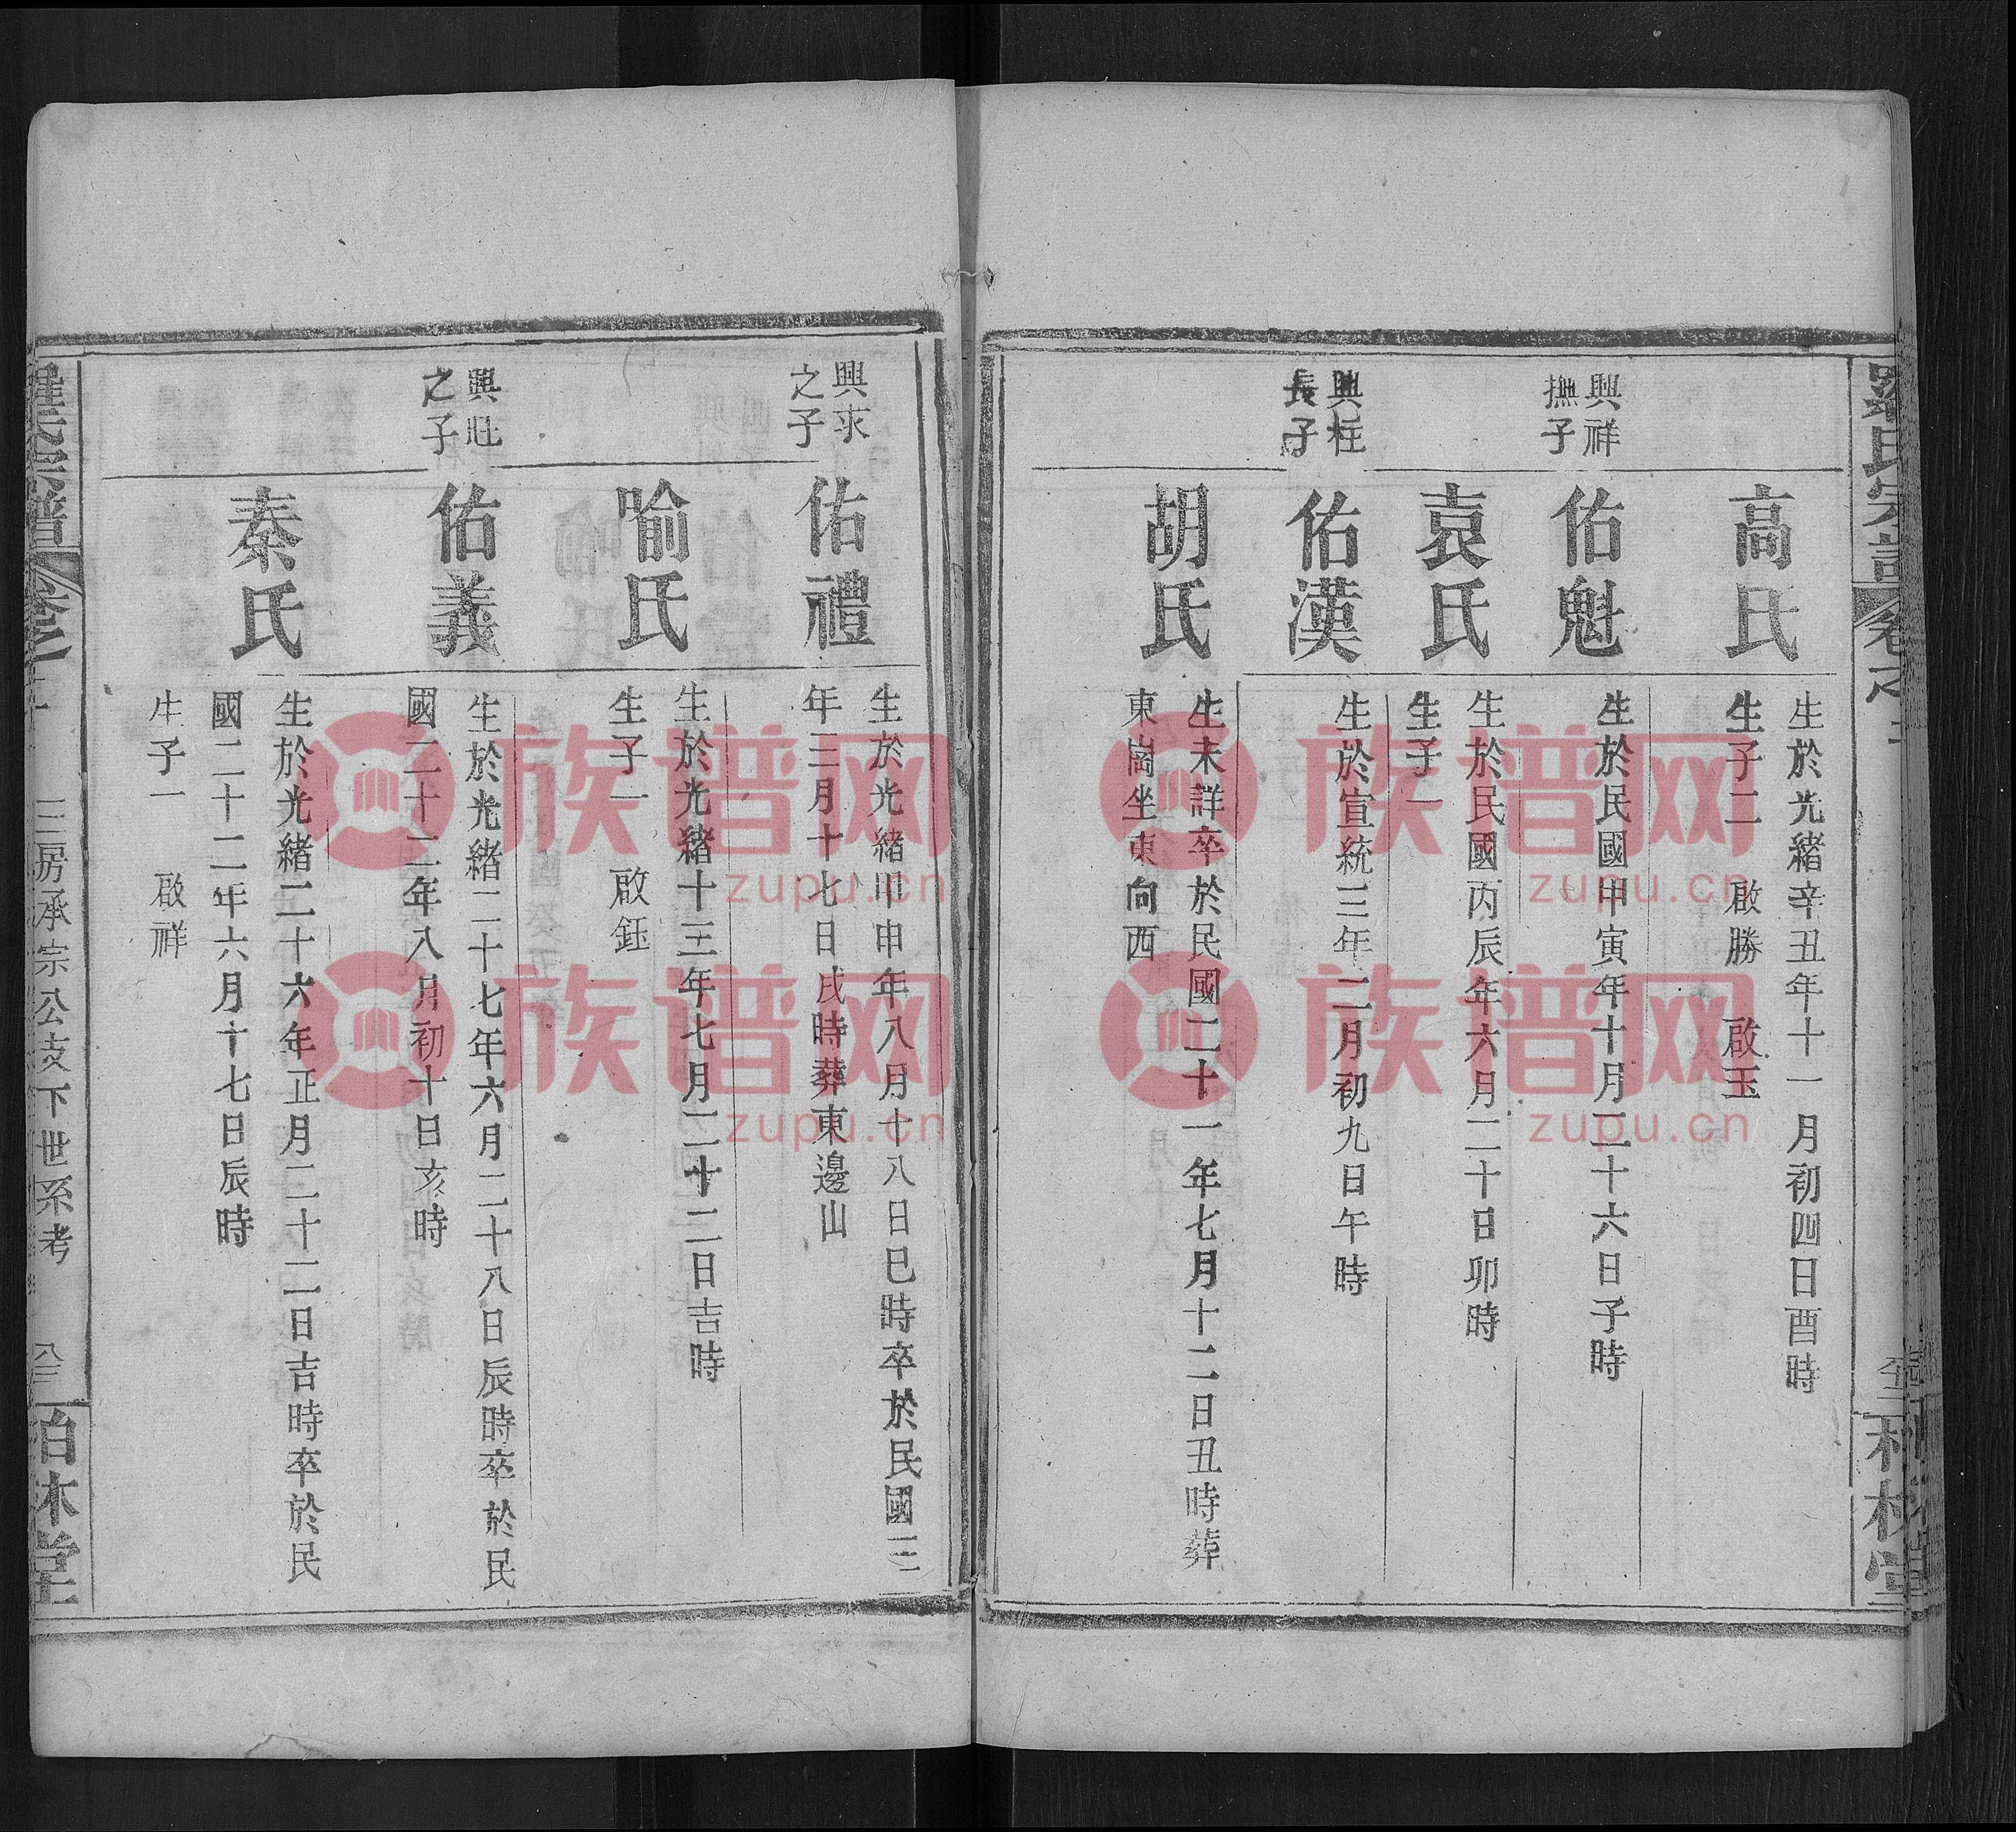 高氏
生於光緒辛丑年十一月初四日酉時
生子二 啟勝 啟玉
興祥
撫子
佑魁
生於民國甲寅年十月二十六日子時
袁氏
生於民國丙辰年六月二十日卯時
生子一
興柱
長子
佑漢
生於宣統三年二月初九日午時
胡氏
生未詳卒於民國二十一年七月十二日丑時葬
東崗坐東向西
興求
之子
佑禮
生於光緒甲申年八月十八日巳時卒於民國三三
年三月十七日戌時葬東邊山
喻氏
生於光緒十三年七月二十二日吉時
生子一 啟鈺
興旺
之子
佑義
生於光緒二十七年六月二十八日辰時卒於民
國二十二年八月初十日亥時
秦氏
生於光緒二十六年正月二十二日吉時卒於民
國二十二年六月十七日辰時
生子一 啟祥
羅氏宗譜
三房承宗公支下世系考
八三
柏林堂
族谱网
zupu.cn
族谱网
zupu.cn
族谱网
zupu.cn
族谱网
zupu.cn